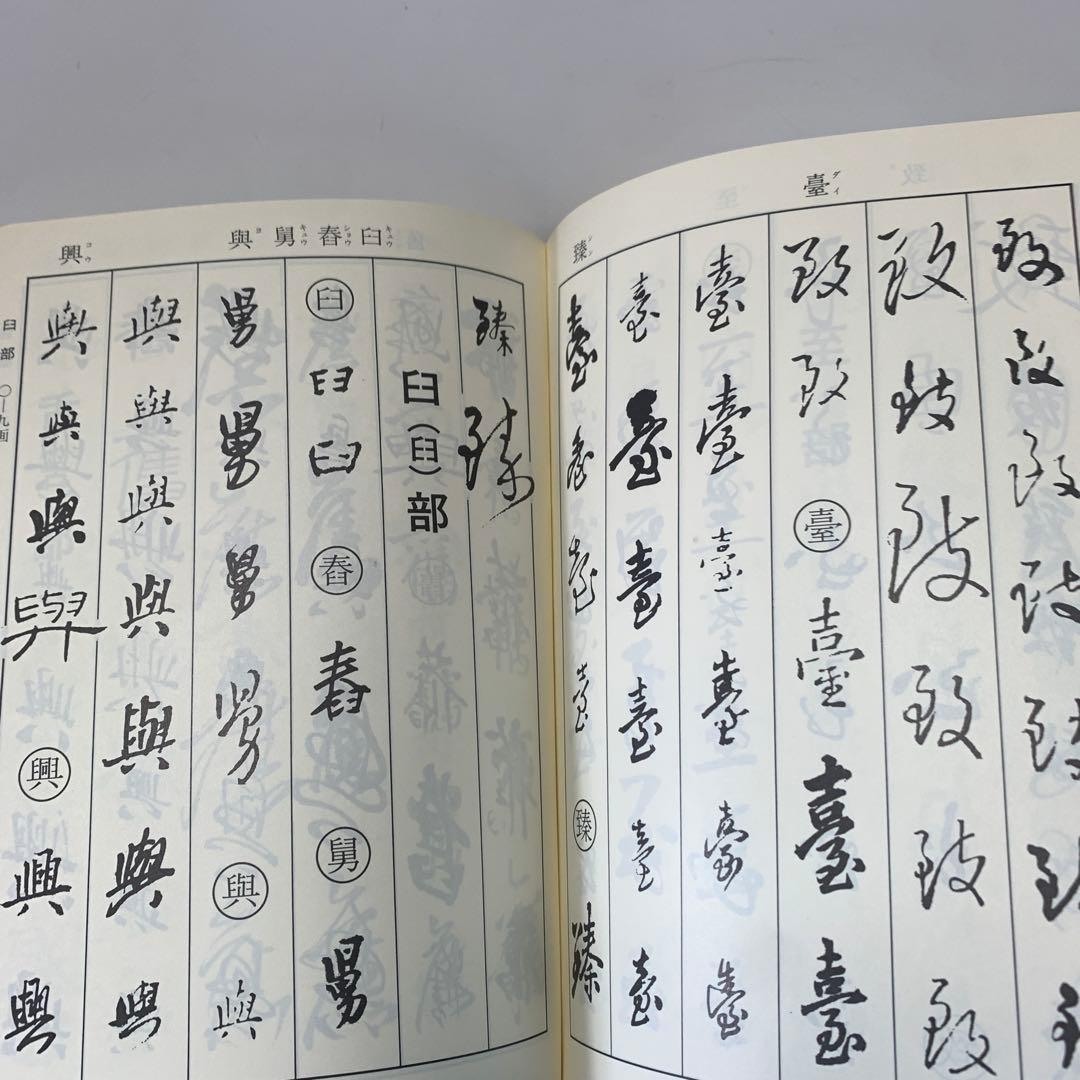 臺ダイ
臻シン
致致致致致致致
致致致致致致
致致臺臺臺臺
臺臺臺臺臺臺
臺臺臺臺臺臺
臺臺臺臺臻臻
臼キュウ 舂ショウ 舅キュウ 與ヨ
興コウ
臻臻
臼(𦥑)部
臼臼臼舂舂舅舅
舅舅舅舅與與
與與與與與與與
與與與與興興興
臼部 〇―九画